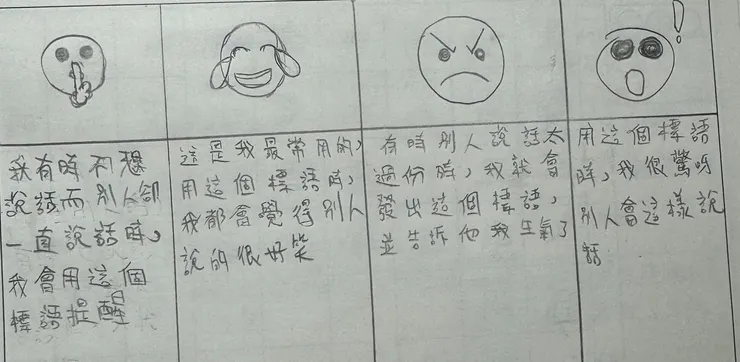 我有時不想
說話而別人卻
一直說話時，
我會用這個
標語提醒
這是我最常用的，
用這個標語時，
我都會覺得別人
說的很好笑
有時別人說話太
過份時，我就會
發出這個標語，
並告訴他我生氣了
!
用這個標語
時，我很驚呀
別人會這樣說
話